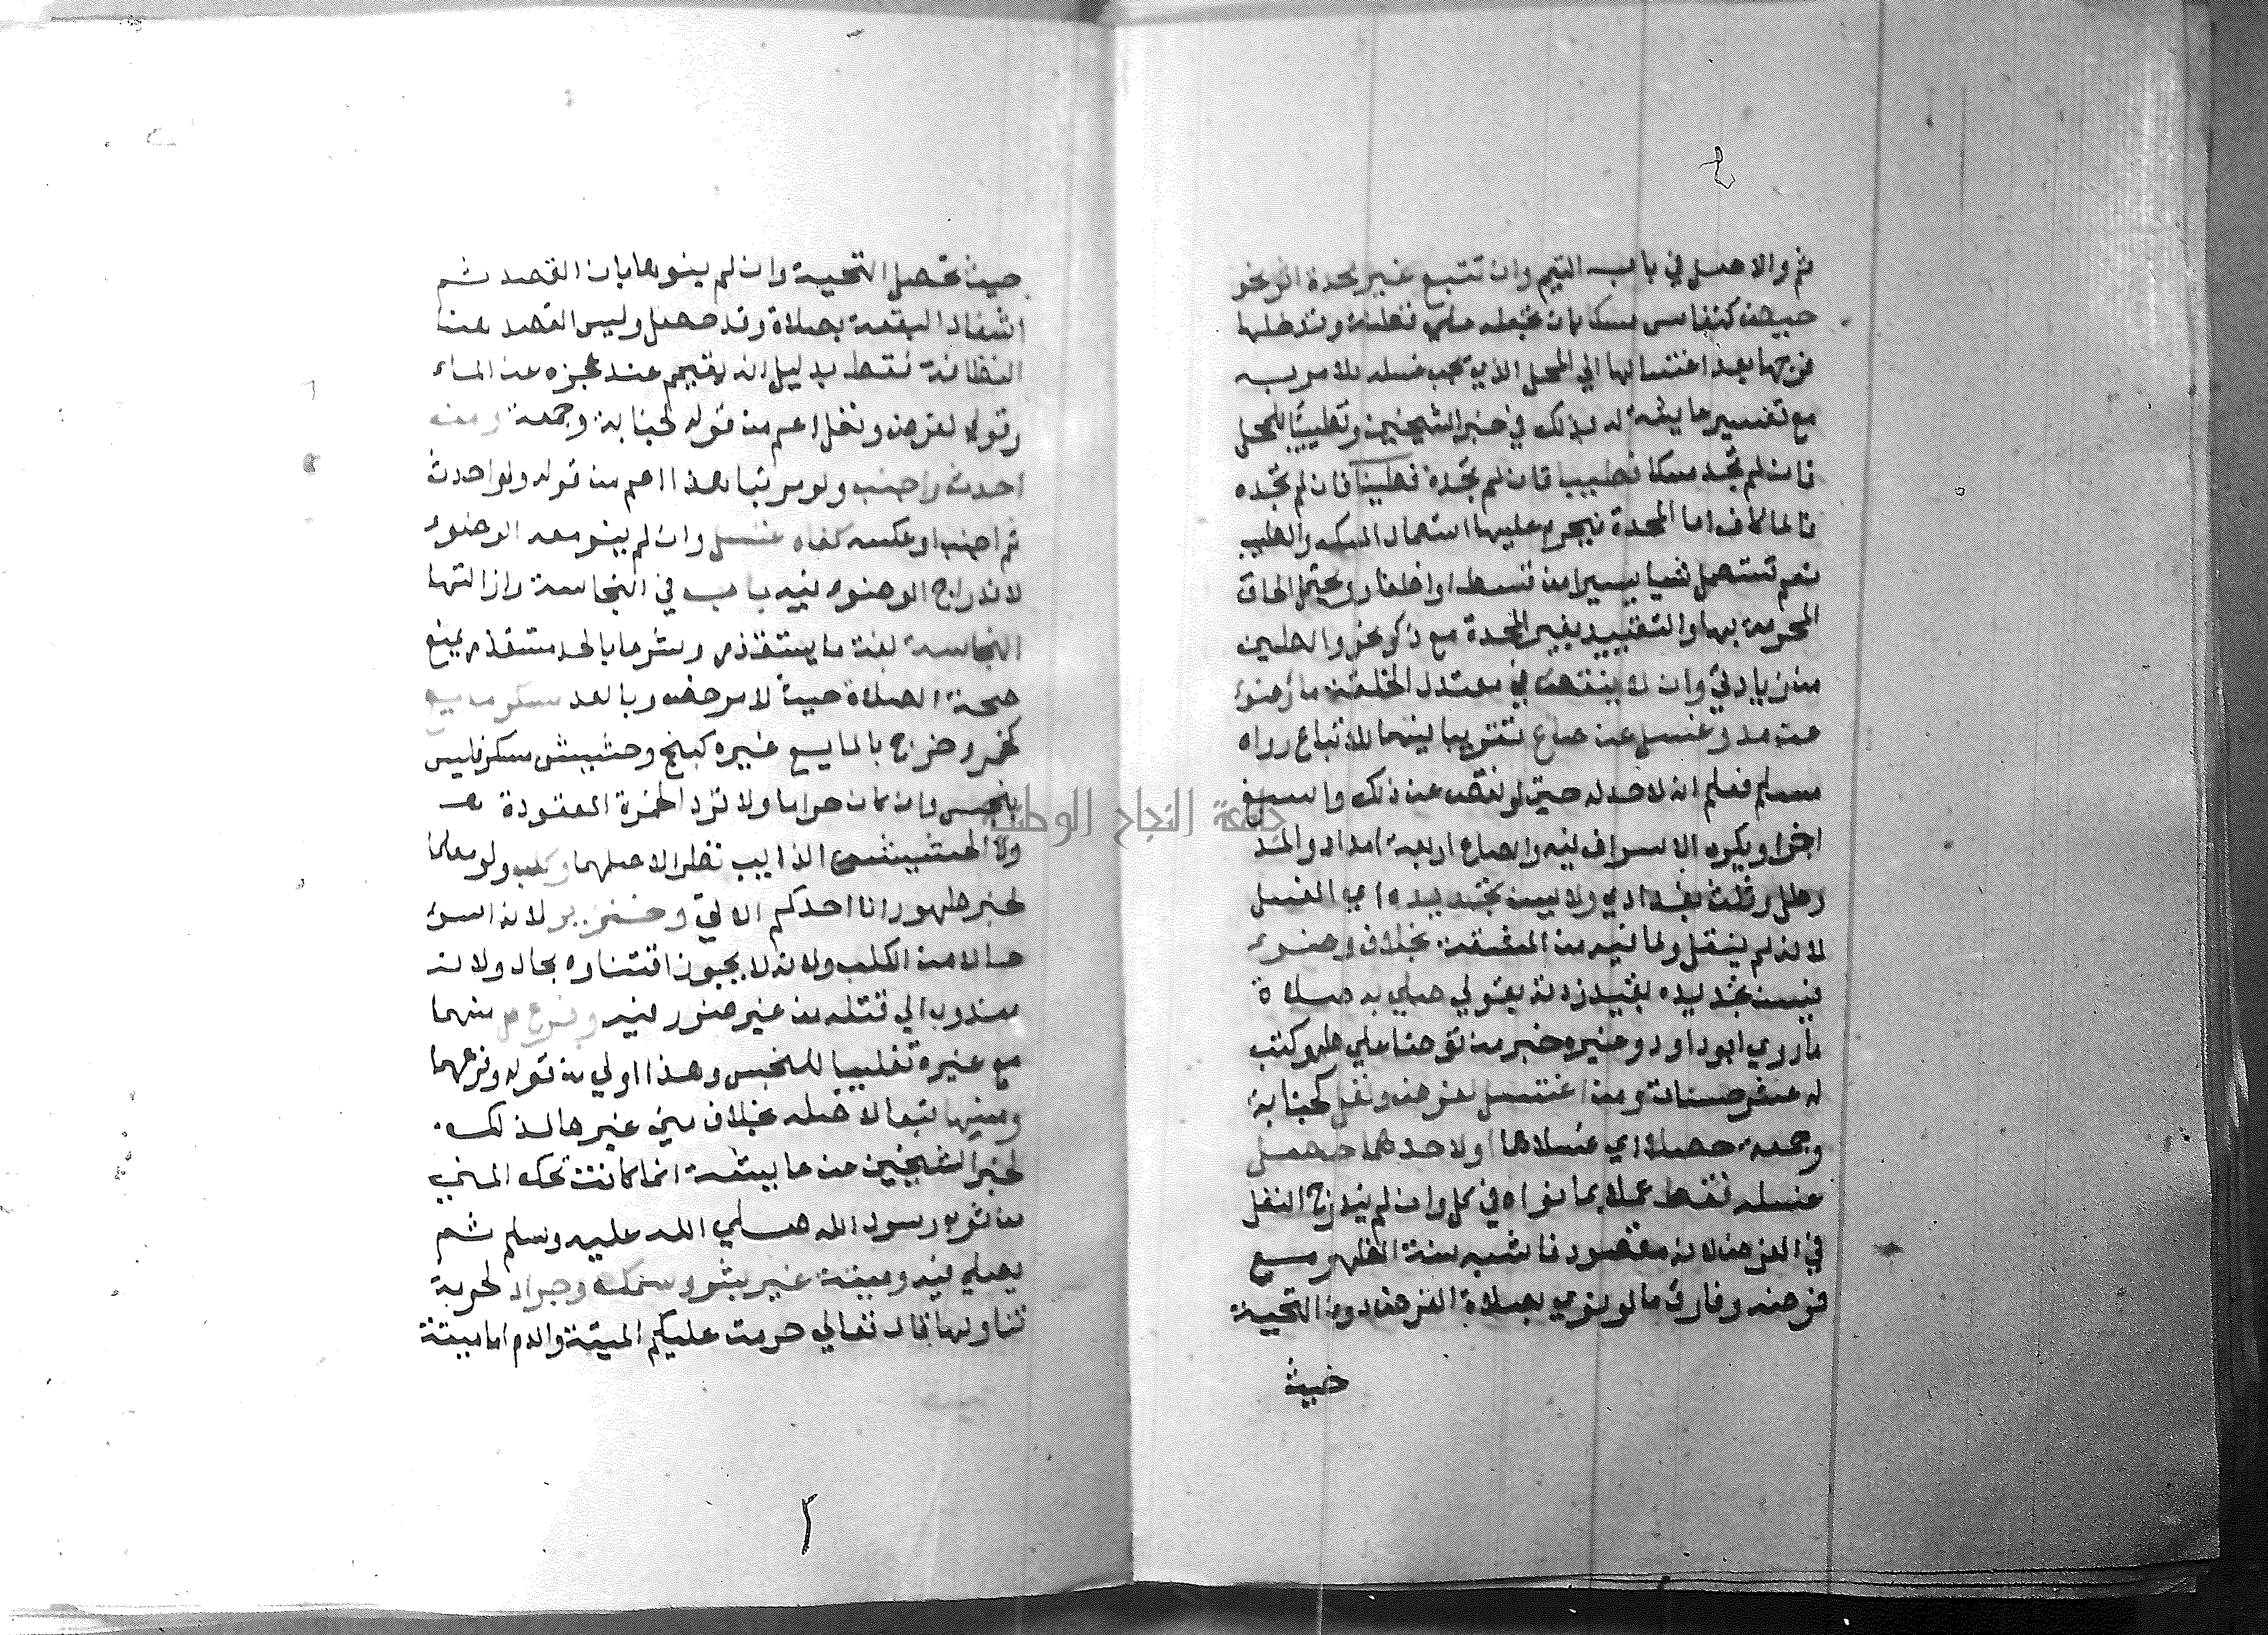 ثم والاصل في باب التيمم وان تتبع غير محدة اثر نحو
حيض كنفاس مسكا بان تجعله على قطنة وتدخلها
فرجها بعد اغتسالها الي المحل الذي يجب غسله للامر به
مع تفسير عايشة له بذلك في خبر الشيخين وتطييبا للمحل
فان لم تجد مسكا فطيبا فان لم تجده فطينا فان لم تجده
فالما كاف اما المحدة فيحرم عليها استعمال المسك والطيب
نعم تستعمل شيا يسيرا من قسط او اظفار ويحتمل الحاق
المحرمة بها والتقييد بغير المحدة مع ذكر نحو والطين
من زيادتي وان لا ينقص في معتدل الخلقة ما وضوء
عن مد وغسل عن صاع تقريبا فيهما للاتباع رواه
مسلم فعلم ان لا حد له حتي لو نقص عن ذلك واسبغ
اجزا ويكره الاسراف فيه والصاع اربعة امداد والمد
رطل وثلث بغدادي ولا يسن تجديده اي الغسل
لانه لم ينقل ولما فيه من المشقة بخلاف وضوء
فيسن تجديده بقيد زدته بقولي صلي به صلاة
ما روي ابو داود وغيره خبر من توضا علي طهر كتب
له عشر حسنات ومن اغتسل لفرض ونفل كجنابة
وجمعة حصلا اي غسلاهما اولاحدهما حصل
غسله فقط عملا بما نواه في كل وان لم يندرج النفل
في الفرض لانه مقصود فاشبه سنة الظهر مع
فرضه وفارق ما لو نوي بصلاة الفرض دون التحية
حيث
حيث تحصل التحية وان لم ينوها بان القصد ثم
اشغال البقعة بصلاة وقد حصل وليس القصد هنا
النظافة فقط بدليل انه يتيمم عند عجزه عن الماء
وقولي لفرض ونفل اعم من قوله لجنابة وجمعة ومن
احدث واجنب ولو مرتبا هذا اعم من قوله ولو احدث
ثم اجنب او عكسه كفاه غسل وان لم ينو معه الوضوء
لاندراج الوضوء فيه باب في النجاسة وازالتها
النجاسة لغة ما يستقذر وشرعا بالحد مستقذر يمنع
صحة الصلاة حيث لا مرخص وبالعد مسكر مايع
كخمر وخرج بالمايع غيره كبنج وحشيش مسكر فليس
بنجس وان كان حراما ولا ترد الخمرة المعقودة
ولا الحشيش الذايب نظرا لاصلهما وكلب ولو معلما
لخبر طهور اناء احدكم الاتي وخنزير لانه اسوء
حالا من الكلب ولانه لا يجوز اقتناوه بحال ولانه
مندوب الي قتله من غير ضرر فيه وفرع كل منهما
مع غيره تغليبا للنجس وهذا اولي من قوله وفرعهما
ومنيها تبعا لاصله بخلاف مني غيرها لذلك
لخبر الشيخين عن عايشة انها كانت تحك المني
من ثوب رسول الله صلي الله عليه وسلم ثم
يصلي فيه وميتة غير بشر وسمك وجراد لحرمة
تناولها قال تعالي حرمت عليكم الميتة والدم اما ميتة
جامعة النجاح الوطنية